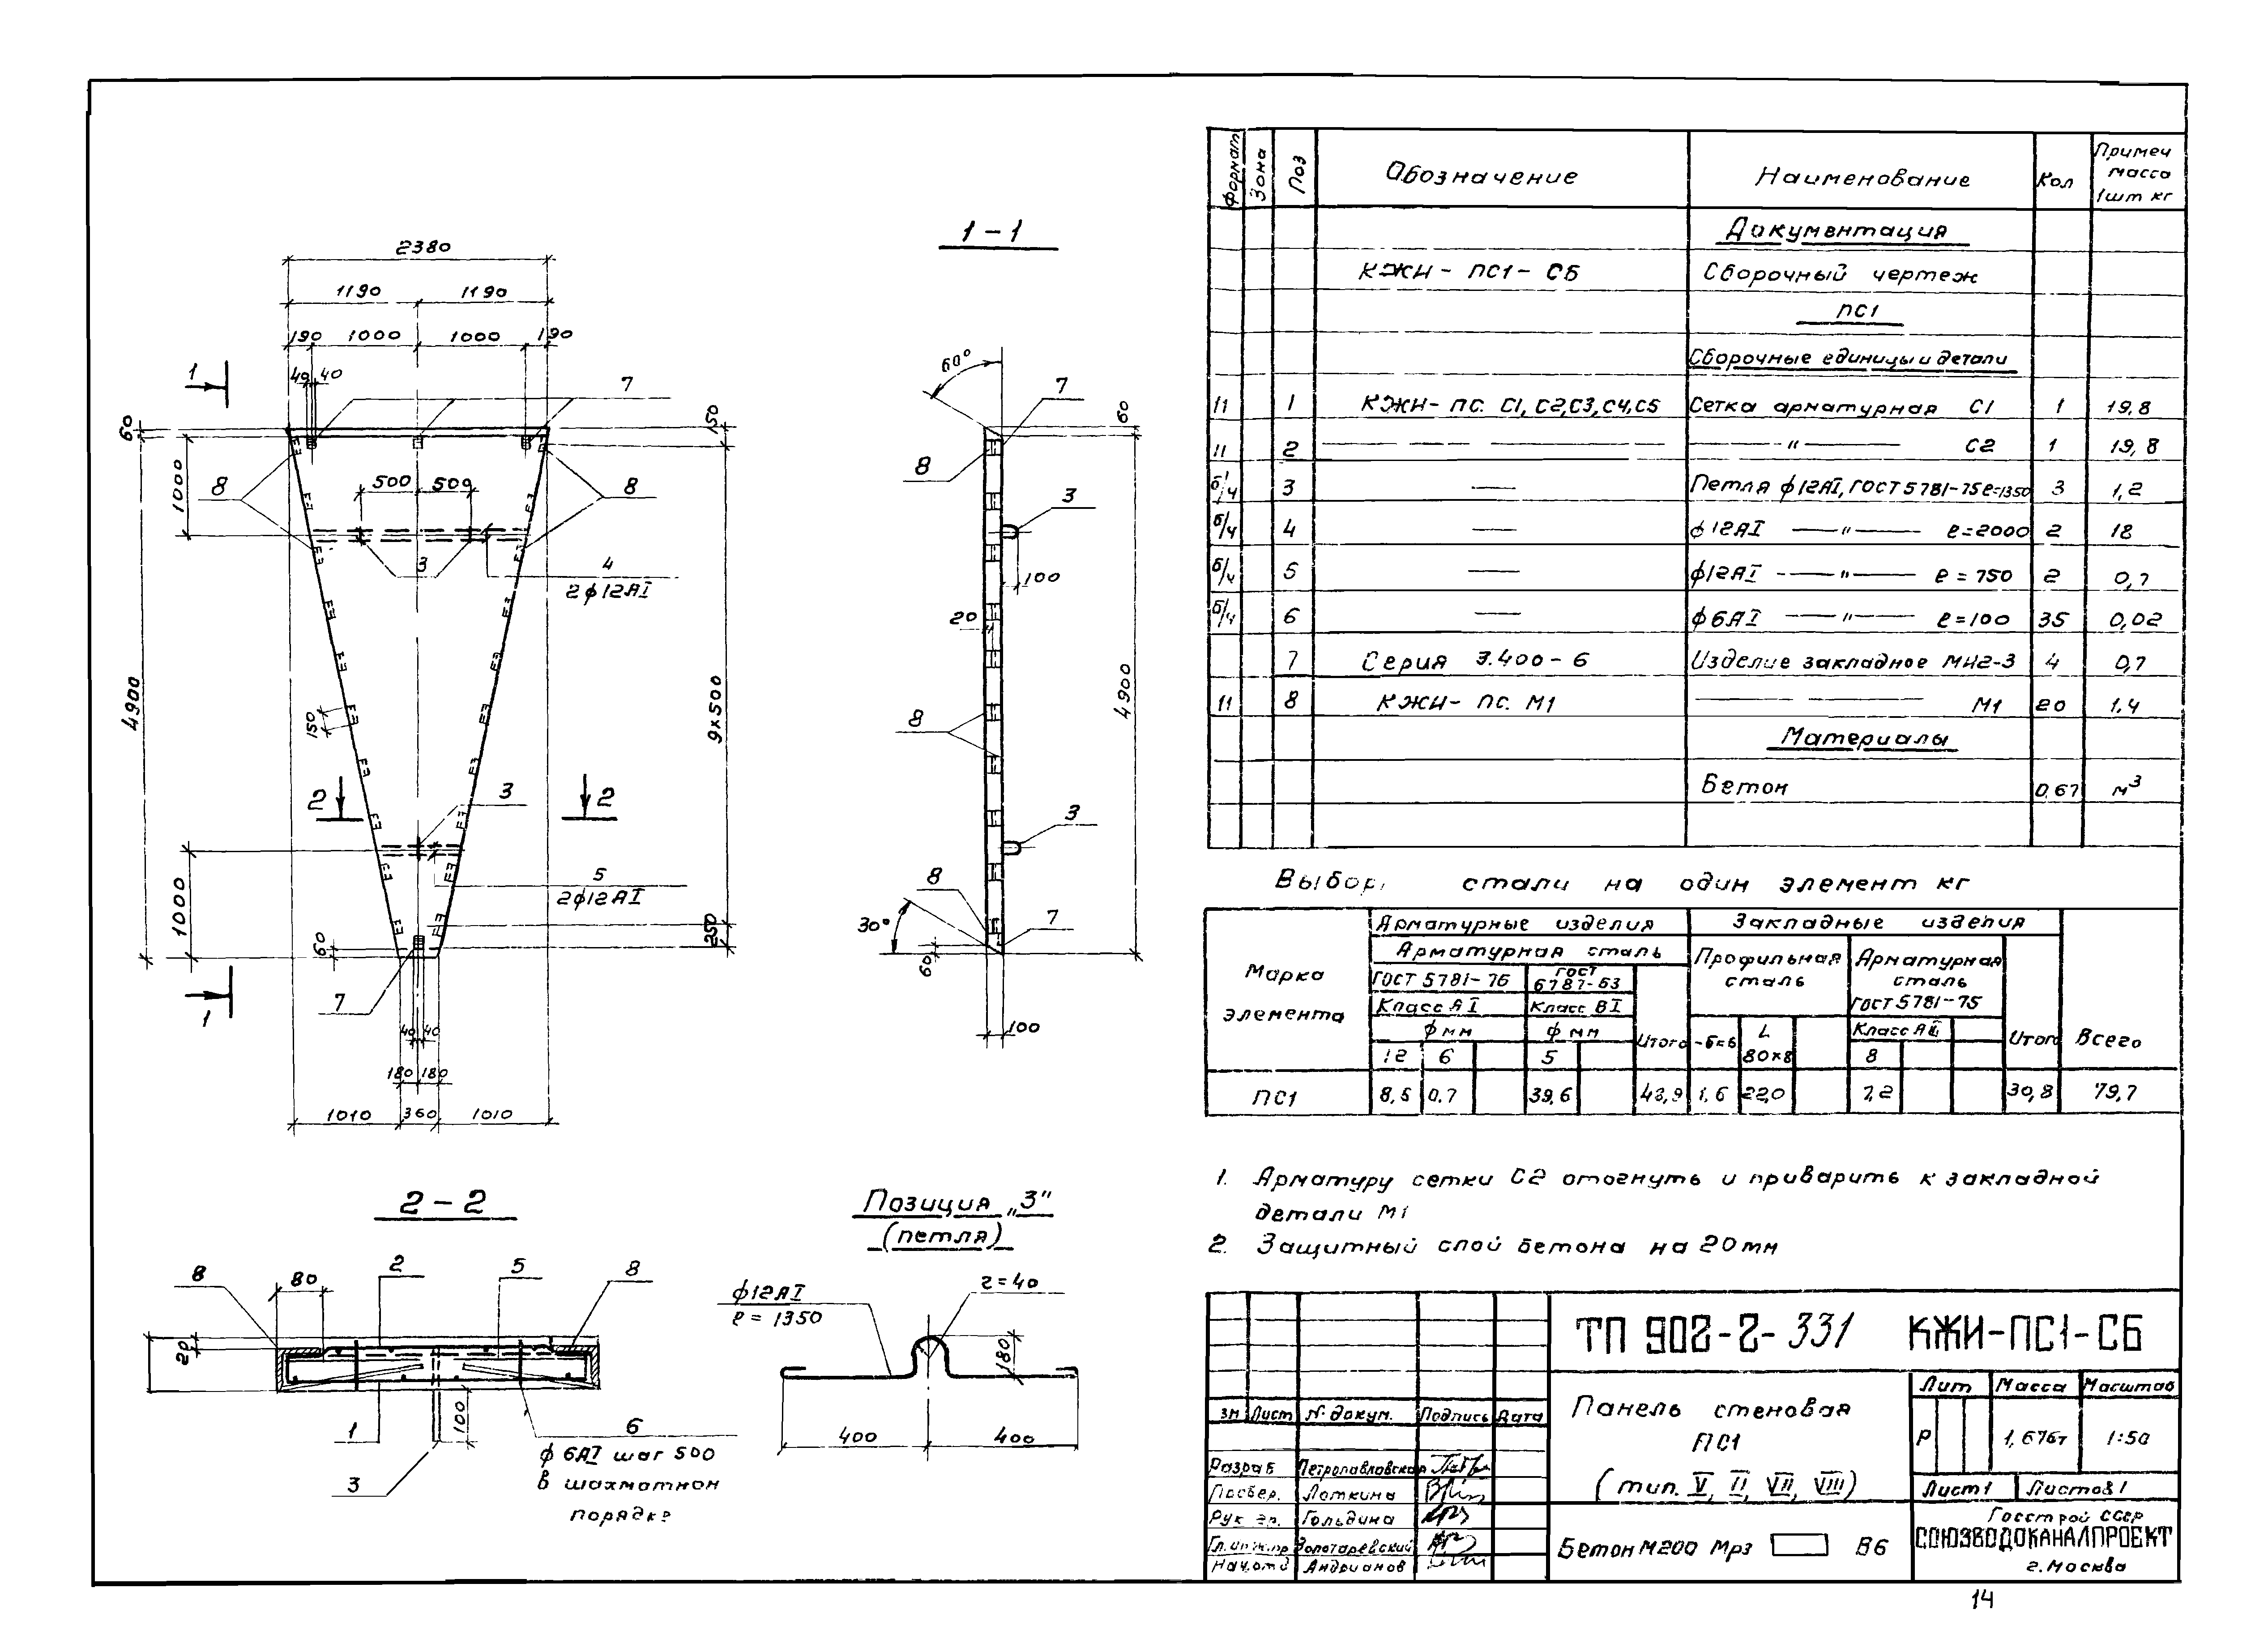 1-1
2380
1190 1190
190 1000 1000 190
40 40
1
7
60
50
1000
8
500 500
8
3
4
2ф12АI
4900
150
9×500
2
3
2
5
2ф12АI
1000
60
250
7
1
40 40
180 180
1010 360 1010
60°
7
60
8
3
100
20
4900
8
3
8
30°
7
60
100
2-2
8
80
2
5
8
20
100
1
6
ф 6АI шаг 500
в шахматном
порядке
3
Позиция „3"
(петля)
ф12АI
ℓ = 1350
r=40
180
400 400
Формат Зона Поз Обозначение Наименование Кол Примеч масса 1шт кг
Документация
КЖИ - ПС1 - СБ Сборочный чертеж
ПС1
Сборочные единицы и детали
11 1 КЖИ - ПС. С1, С2, С3, С4, С5 Сетка арматурная С1 1 19,8
11 2 — " — С2 1 19,8
б/ч 3 — Петля ф12АI, ГОСТ 5781-75 ℓ=1350 3 1,2
б/ч 4 — ф12АI — " — ℓ=2000 2 18
б/ч 5 — ф12АI — " — ℓ=750 2 0,7
б/ч 6 — ф6АI — " — ℓ=100 35 0,02
7 Серия 3.400-6 Изделие закладное МН2-3 4 0,7
11 8 КЖИ - ПС. М1 — М1 20 1.4
Материалы
Бетон 0,67 м³
Выбор стали на один элемент кг
Марка элемента
Арматурные изделия Закладные изделия
Арматурная сталь Профильная сталь Арматурная сталь
ГОСТ 5781-76 ГОСТ 6787-53 ГОСТ 5781-75
Класс АI Класс ВI Класс АII
ф мм ф мм Итого -δ=6 L 80×8 Итого Всего
12 6 5 8
ПС1 8,5 0.7 39,6 48,9 1,6 22,0 7,2 30,8 79,7
1. Арматуру сетки С2 отогнуть и приварить к закладной
детали М1
2. Защитный слой бетона на 20мм
ТП 902-2-331 КЖИ-ПС1-СБ
Панель стеновая
ПС1
(тип. V, II, VII, VIII)
Лит Масса Масштаб
Р 1,676т 1:50
Лист 1 Листов 1
зм Лист N докум. Подпись Дата
Разраб Петропавловская
Провер. Лоткина
Рук гр. Гольдина
Гл.инж.пр Золотаревский
Нач.отд Андрианов
Бетон М200 Мрз В6
Госстрой СССР
СОЮЗВОДОКАНАЛПРОЕКТ
г. Москва
14